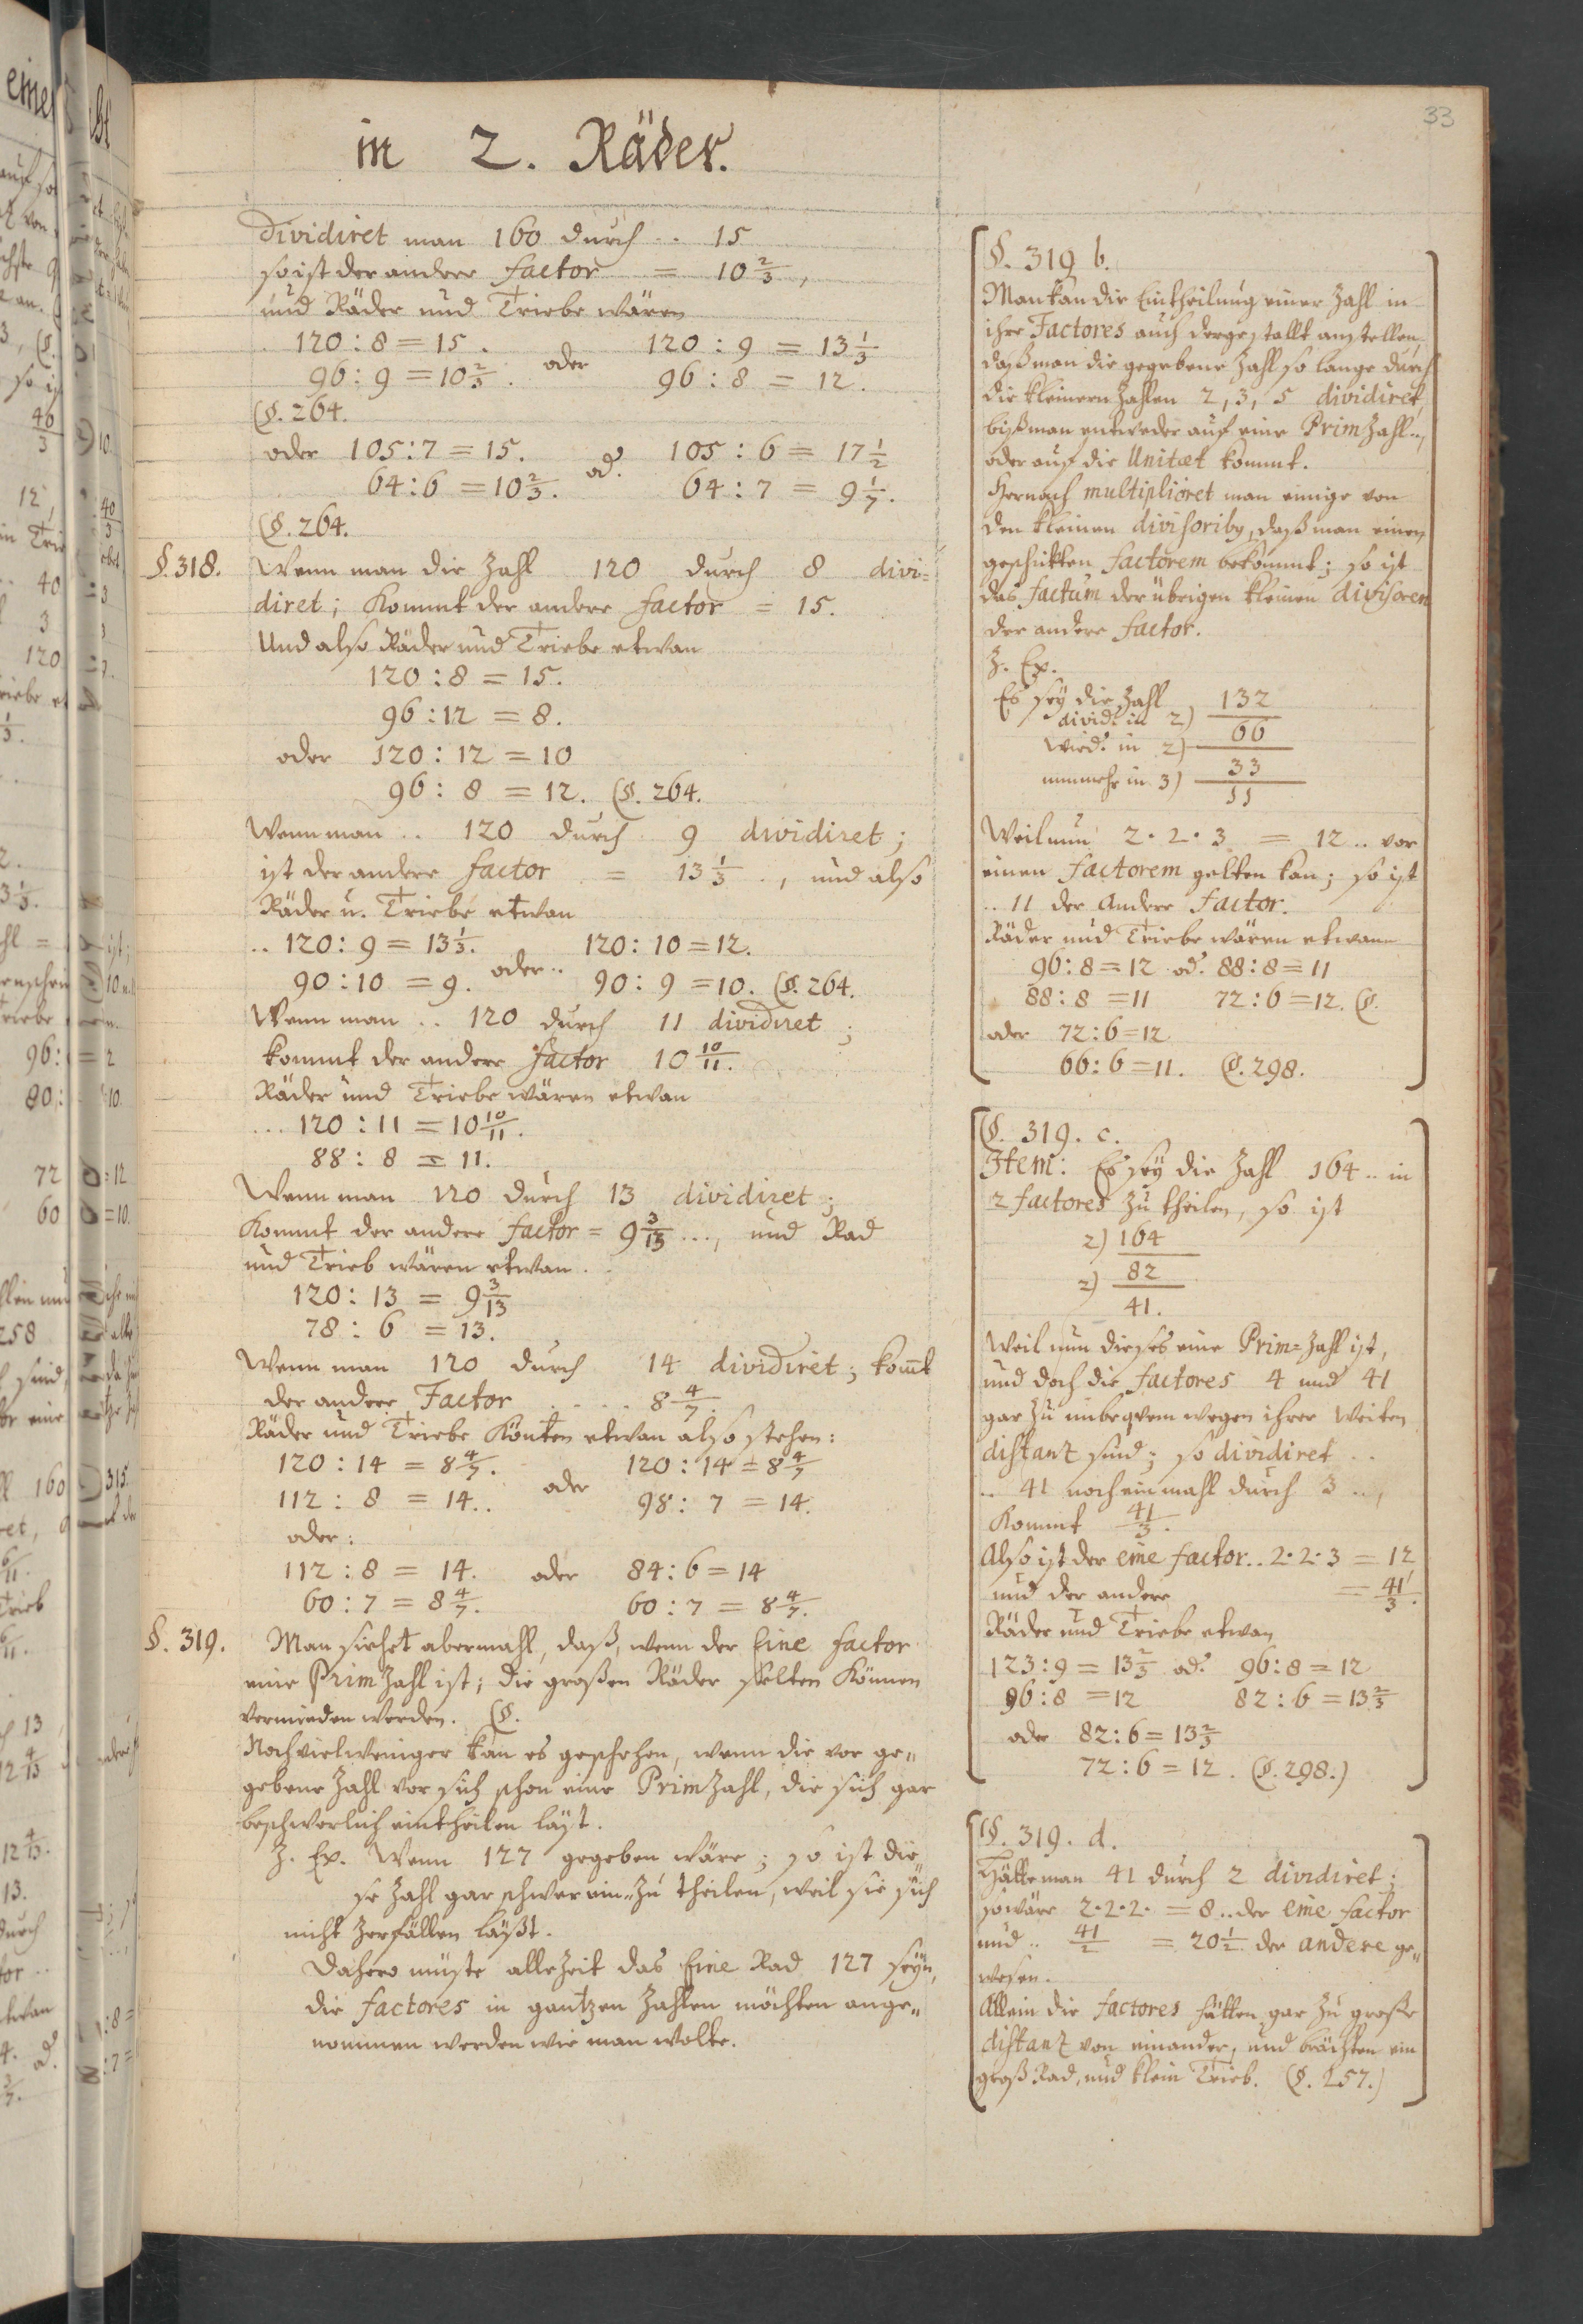 33
in 2. Räder.
Dividiret man 160 durch .. 15
so ist der andere factor = 10 2/3,
und Räder und Triebe wären
120 : 8 = 15. oder 120 : 9 = 13 1/3
96 : 9 = 10 2/3. 96 : 8 = 12.
(§. 264.
oder 105 : 7 = 15. od. 105 : 6 = 17 1/2
64 : 6 = 10 2/3. 64 : 7 = 9 1/7.
(§. 264.
§. 318. Wenn man die Zahl 120 durch 8 divi=
diret; kommt der andere factor = 15.
Und also Räder und Triebe etwan
120 : 8 = 15.
96 : 12 = 8.
oder 120 : 12 = 10
96 : 8 = 12. (§. 264.
Wenn man .. 120 durch 9 dividiret;
ist der andere factor = 13 1/3 ., und also
Räder u. Triebe etwan
.. 120 : 9 = 13 1/3. oder .. 120 : 10 = 12.
90 : 10 = 9. 90 : 9 = 10. (§. 264.
Wenn man .. 120 durch 11 dividiret;
kommt der andere factor 10 10/11.
Räder und Triebe wären etwan
... 120 : 11 = 10 10/11.
88 : 8 = 11.
Wenn man 120 durch 13 dividiret;
kommt der andere factor = 9 3/13 ..., und Rad
und Trieb wären etwan.
120 : 13 = 9 3/13
78 : 6 = 13.
Wenn man 120 durch 14 dividiret; kom̄t
der andere Factor .... 8 4/7.
Räder und Triebe könten etwan also stehen:
120 : 14 = 8 4/7. oder 120 : 14 = 8 4/7
112 : 8 = 14.. 98 : 7 = 14.
oder:
112 : 8 = 14. oder 84 : 6 = 14
60 : 7 = 8 4/7. 60 : 7 = 8 4/7.
§. 319. Man siehet abermahl, daß, wenn der Eine factor
eine Prim Zahl ist; die großen Räder selten können
vermieden werden. (§.
Noch vielweniger kan es geschehen, wenn die vor ge„
gebene Zahl vor sich schon eine Prim Zahl, die sich gar
beschwerlich eintheilen läst.
Z. Ex. Wenn 127 gegeben wäre; so ist die„
se Zahl gar schwer ein„zu theilen, weil sie sich
nicht zerfällen läßt.
Dahero müste allezeit das Eine Rad 127 seyn,
die factores in gantzen Zahlen möchten ange„
nommen werden wie man wolte.
§. 319 b.
Man kan die Eintheilung einer Zahl in
ihre Factores auch dergestallt anstellen,
daß man die gegebene Zahl so lange durch
die kleinern Zahlen 2, 3, 5 dividiret,
biß man entweder auf eine Prim Zahl ..,
oder auf die Unitæt kommt.
Hernach multipliciret man einige von
den kleinen divisoriby, daß man einen
geschickten factorem bekommt; so ist
das factum der übrigen kleinen divisoren
der andere factor.
Z. Ex.
Es sey die Zahl 132
divid. in 2) 66
wied. in 2) 33
nunmehr in 3) 11
Weil nun 2 · 2 · 3 = 12 .. vor
einen factorem gelten kan; so ist
.. 11 der Andere factor.
Räder und Triebe wären etwann
96 : 8 = 12 od. 88 : 8 = 11
88 : 8 = 11 72 : 6 = 12. (§.
oder 72 : 6 = 12
66 : 6 = 11. (§. 298.
§. 319. c.
Item: Es sey die Zahl 164 .. in
2 factores zu theilen, so ist
2) 164
2) 82
41.
Weil nun dieses eine Prim=Zahl ist,
und doch die factores 4 und 41
gar zu unbeqvem wegen ihrer weiten
distanz sind; so dividiret ..
.. 41 noch einmahl durch 3 ..,
kommt 41/3.
Also ist der eine factor .. 2 · 2 · 3 = 12
und der andere = 41/3.
Räder und Triebe etwan
123 : 9 = 13 2/3 od. 96 : 8 = 12
96 : 8 = 12 82 : 6 = 13 2/3
oder 82 : 6 = 13 2/3
72 : 6 = 12. (§. 298.)
§. 319. d.
Hätte man 41 durch 2 dividiret;
so wäre 2 · 2 · 2 · = 8 .. der eine factor
und .. 41/2 = 20 1/2 der andere ge„
wesen.
Allein die factores hätten gar zu große
distanz von einander, und brächten ein
groß Rad, und klein Trieb. (§. 257.)